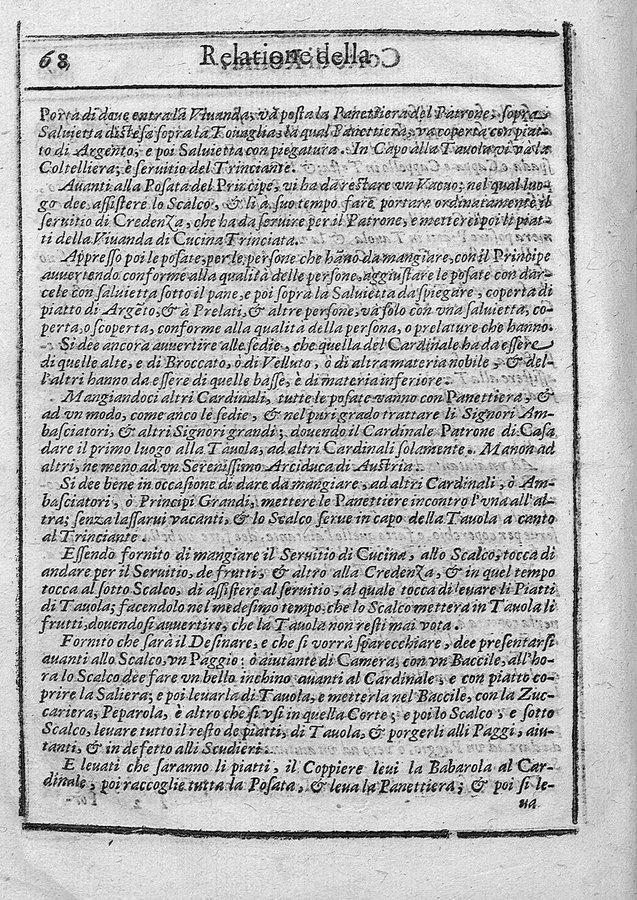 68 Relatione della
Porta di doue entra la Viuanda; và posta la Panettiera del Patrone; sopra
Saluietta distesa sopra la Touaglia; la qual Panettiera, va coperta con piat-
to di Argento, e poi Saluietta con piegatura. In Capo alla Tauola vi và la
Coltelliera; è seruitio del Trinciante.
Auanti alla Posata del Principe, vi ha da restare vn Vacuo; nel qual luo-
go dee assistere lo Scalco, & lì a suo tempo fare portare ordinatamente il
seruitio di Credenza, che ha da seruire per il Patrone, e metterci poi li piat-
ti della Viuanda di Cucina Trinciata.
Appresso poi le posate, per le persone che hanno da mangiare, con il Principe
auuertendo conforme alla qualità delle persone, aggiustare le posate con dar-
cele con saluietta sotto il pane, e poi sopra la Saluietta da spiegare, coperta di
piatto di Argẽto, & à Prelati, & altre persone, và solo con vna saluietta, co-
perta, o scoperta, conforme alla qualità della persona, o prelature che hanno.
Si dee ancora auuertire alle sedie, che quella del Cardinale ha da essere
di quelle alte, e di Broccato, ò di Velluto, ò di altra materia nobile, & del-
l'altri hanno da essere di quelle basse, è di materia inferiore.
Mangiandoci altri Cardinali, tutte le posate vanno con Panettiera, &
ad vn modo, come anco le sedie, & nel pari grado trattare li Signori Am-
basciatori, & altri Signori grandi; douendo il Cardinale Patrone di Casa
dare il primo luogo alla Tauola, ad altri Cardinali solamente. Ma non ad
altri, ne meno ad vn Serenissimo Arciduca di Austria.
Si dee bene in occasione di dare da mangiare, ad altri Cardinali, ò Am-
basciatori, ò Principi Grandi, mettere le Panettiere incontro l'vna all'al-
tra; senza lassarui vacanti, & lo Scalco serue in capo della Tauola a canto
al Trinciante.
Essendo fornito di mangiare il Seruitio di Cucina, allo Scalco, tocca di
andare per il Seruitio, de frutti, & altro alla Credenza, & in quel tempo
tocca al sotto Scalco, di assistere al seruitio, al quale tocca di leuare li Piatti
di Tauola; facendolo nel medesimo tempo, che lo Scalco metterà in Tauola li
frutti, douendosi auuertire, che la Tauola non resti mai vota.
Fornito che sarà il Desinare, e che si vorrà sparecchiare, dee presentarsi
auanti allo Scalco, vn Paggio; ò aiutante di Camera, con vn Baccile, all'ho-
ra lo Scalco dee fare vn bello inchino auanti al Cardinale, e con piatto co-
prire la Saliera; e poi leuarla di Tauola, e metterla nel Baccile, con la Zuc-
cariera, Peparola, è altro che si vsi in quella Corte; e poi lo Scalco, e sotto
Scalco, leuare tutto il resto de piatti, di Tauola, & porgerli alli Paggi, aiu-
tanti, & in defetto alli Scudieri.
E leuati che saranno li piatti, il Coppiere leui la Babarola al Car-
dinale, poi raccoglie tutta la Posata, & leua la Panettiera; & poi si le-
ua